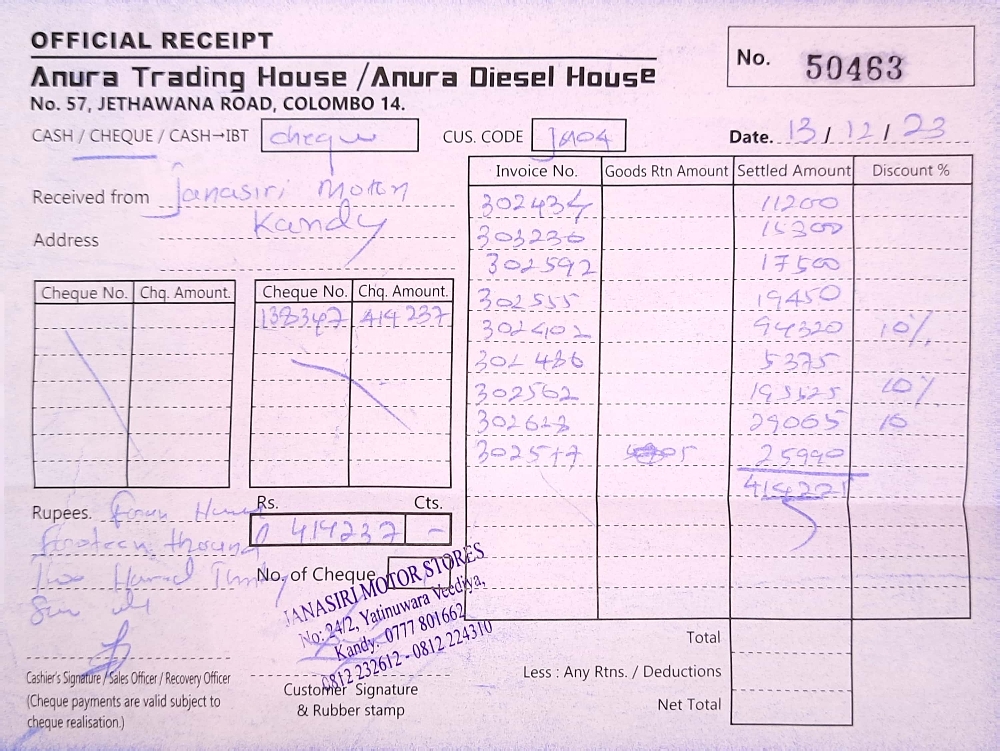 OFFICIAL RECEIPT
Anura Trading House /Anura Diesel House
No. 57, JETHAWANA ROAD, COLOMBO 14.
No. 50463
CASH / CHEQUE / CASH→IBT cheque
CUS. CODE JA04
Date. 13 / 12 / 23
Received from Janasiri Motor
Kandy
Address
Cheque No. Chq. Amount.
Cheque No. Chq. Amount.
414237
Invoice No. Goods Rtn Amount Settled Amount Discount %
302434 11200
303236 15300
302592 17500
302555 19450
302402 94320 10%
5375
302562 10%
29065 10
25990
Rs. Cts.
414237 -
Rupees. Four
thousand
Two
No. of Cheque
JANASIRI MOTOR STORES
No: 24/2, Yatinuwara Veediya,
Kandy. 0777 801662
0812 232612 - 0812 224310
Cashier's Signature / Sales Officer / Recovery Officer
(Cheque payments are valid subject to
cheque realisation.)
Customer Signature
& Rubber stamp
Total
Less : Any Rtns. / Deductions
Net Total